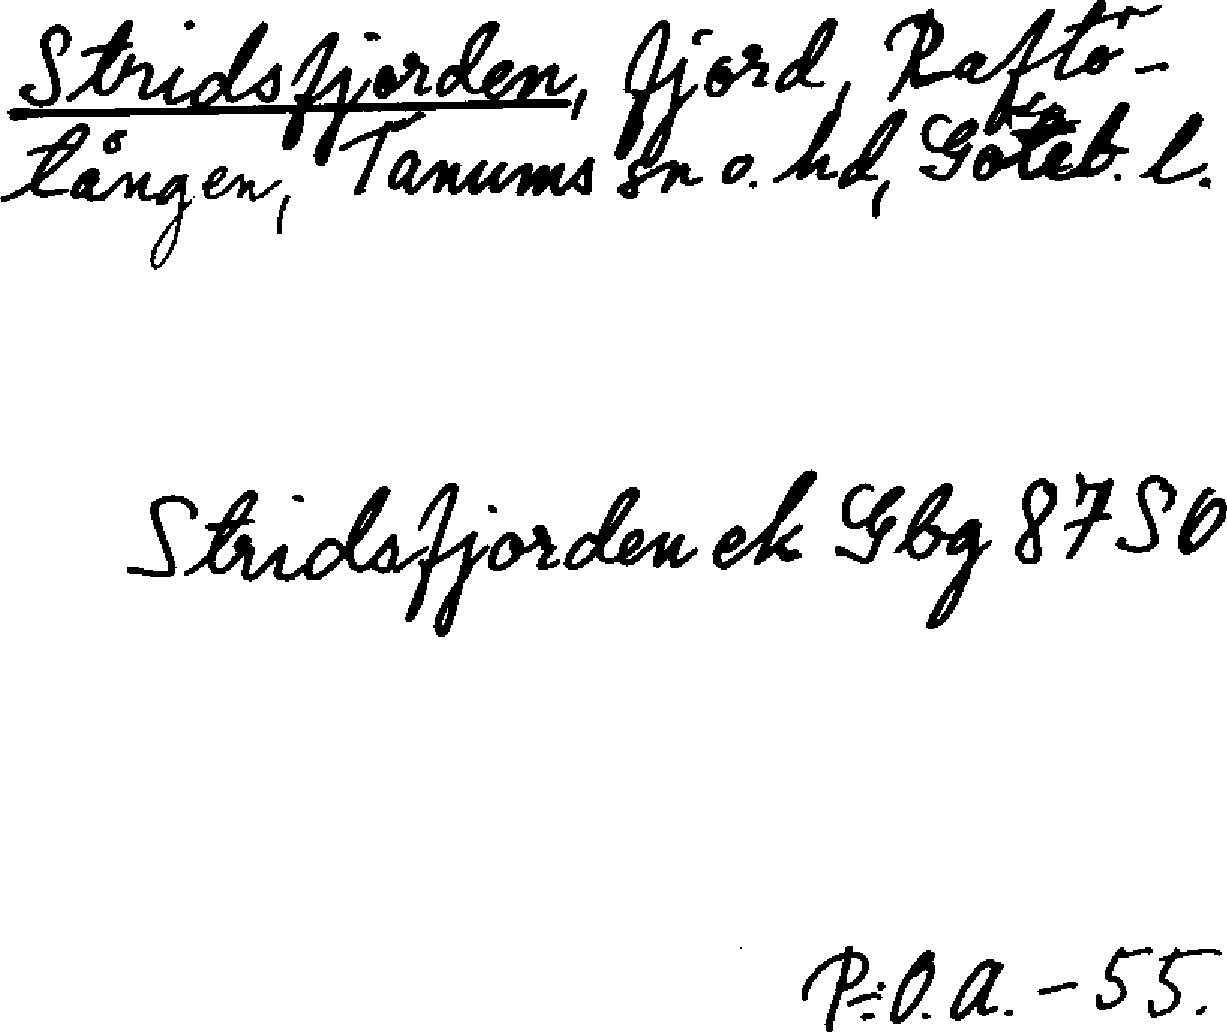 Stridsfjorden, fjord, Raftö-
tången, Tanums sn o. hd, Göteb. l.
Stridsfjorden ek Gbg 87 SO
P:O.A. - 55.